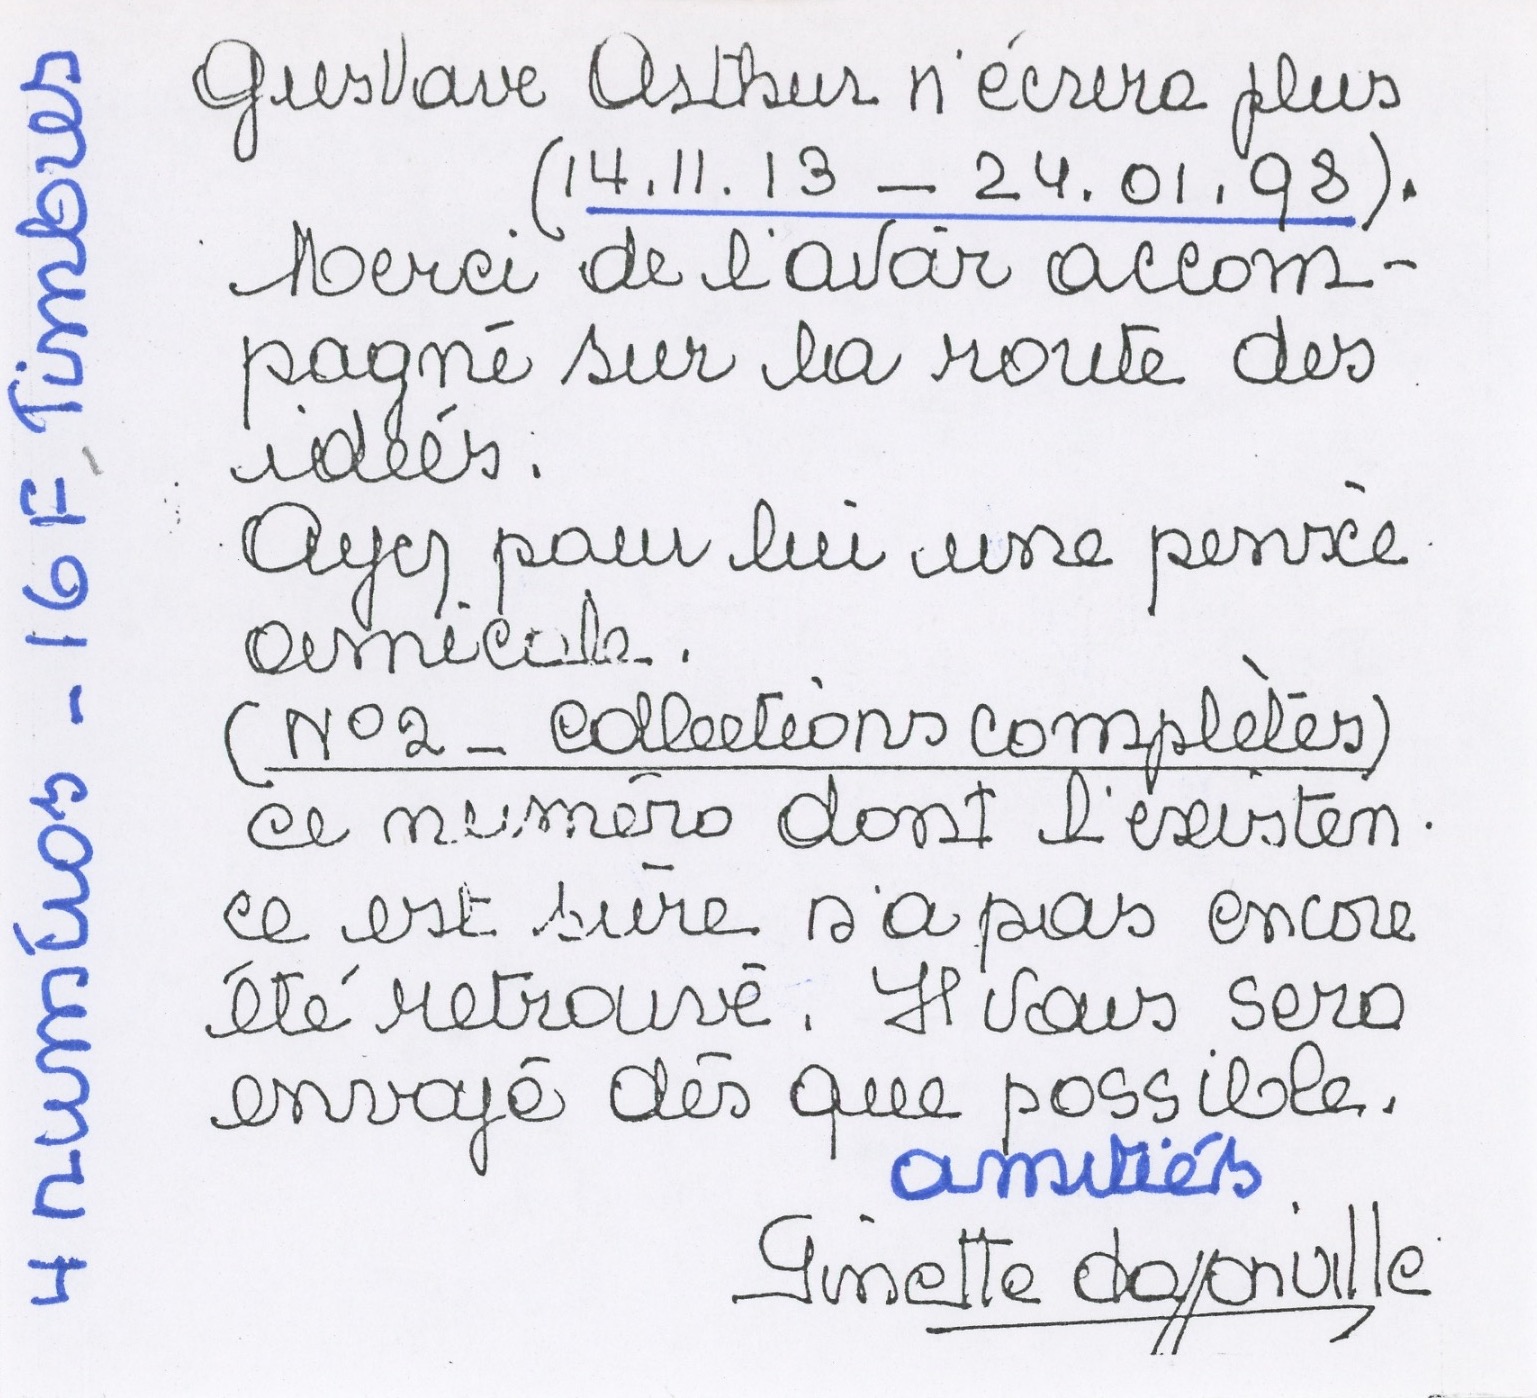 Gustave Arthur n'écrira plus
(14.11.13 – 24.01.98).
Merci de l'avoir accom-
pagné sur la route des
idées.
Ayez pour lui une pensée
amicale.
(N°2 – collections complètes)
ce numéro dont l'existen-
ce est sûre n'a pas encore
été retrouvé. Il vous sera
envoyé dès que possible.
amitiés
Ginette
4 numéros - 16 F, Timbres